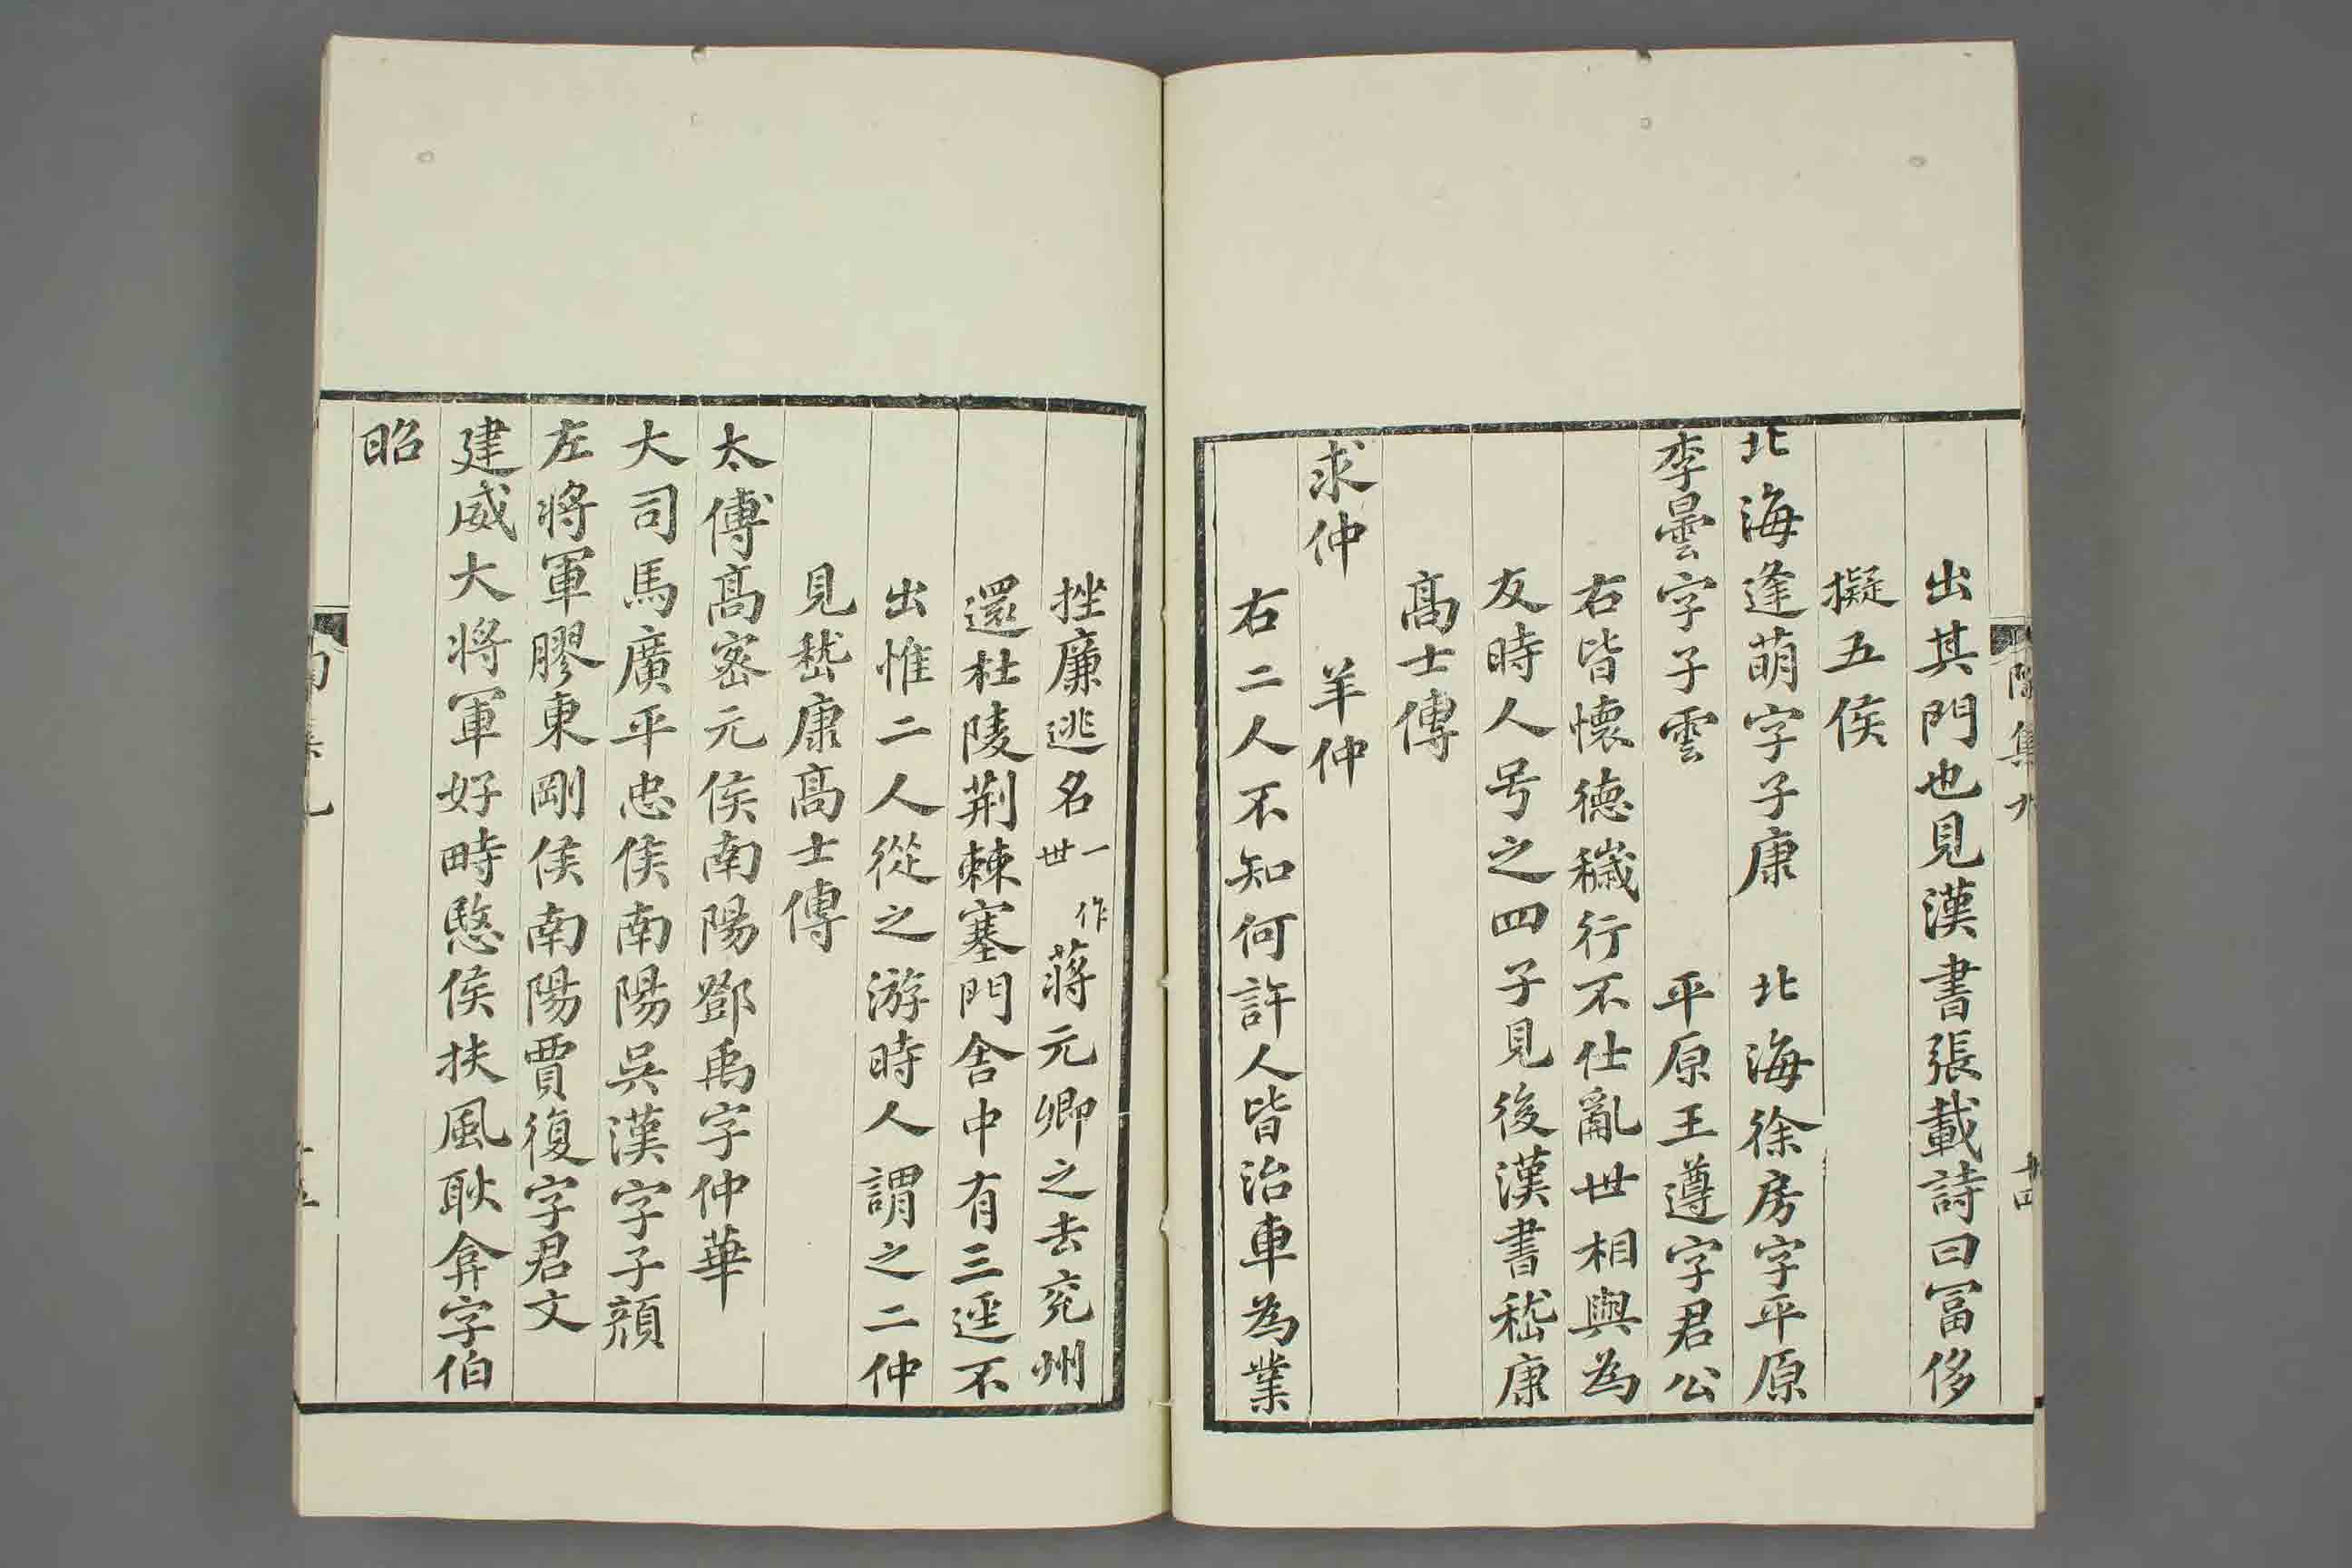 出其門也見漢書張載詩曰冨侈
擬五侯
北海逢萌字子康　北海徐房字平原
李曇字子雲　平原王遵字君公
右皆懷德穢行不仕亂世相與為
友時人号之四子見後漢書嵇康
髙士傳
求仲　羊仲
右二人不知何許人皆治車為業
挫廉逃名一作世蔣元卿之去兖州
還杜陵荆棘塞門舍中有三逕不
出惟二人從之游時人謂之二仲
見嵇康髙士傳
太傅髙宻元侯南陽鄧禹字仲華
大司馬廣平忠侯南陽吳漢字子顔
左將軍膠東剛侯南陽賈復字君文
建威大將軍好畤愍侯扶風耿弇字伯
昭